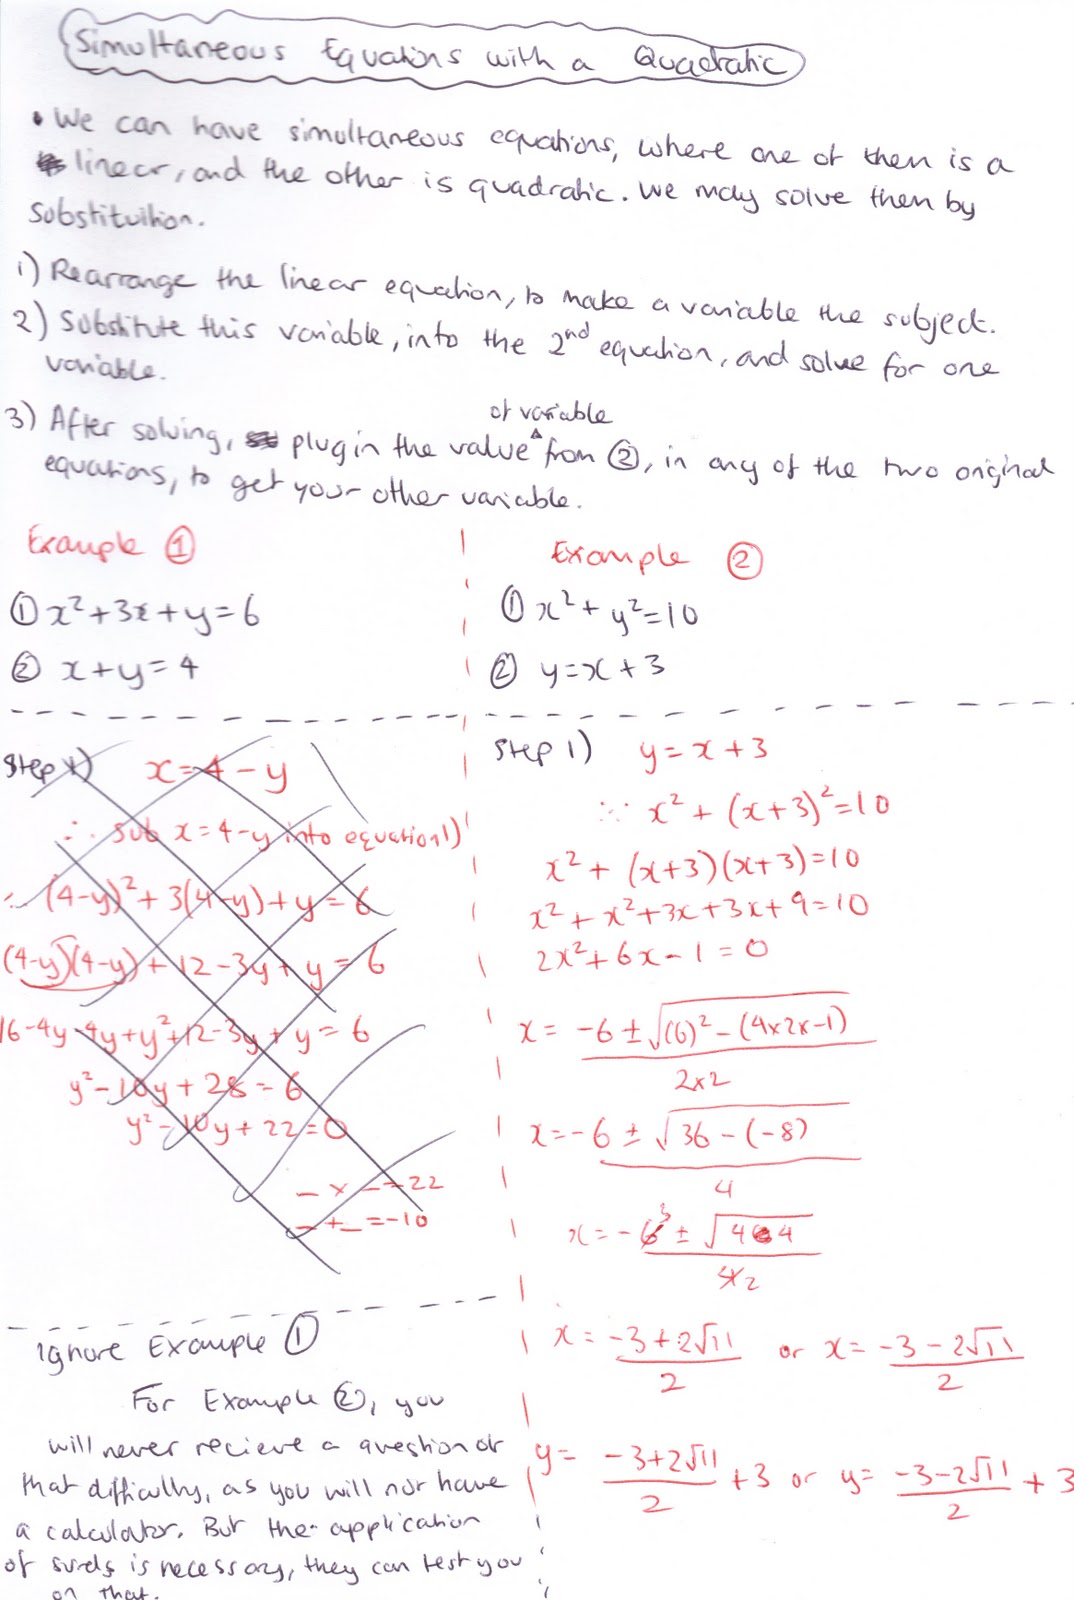 Simultaneous Equations with a Quadratic
• We can have simultaneous equations, where one of them is a
linear, and the other is quadratic. We may solve them by
substituition.
1) Rearrange the linear equation, to make a variable the subject.
2) Substitute this variable, into the 2nd equation, and solve for one
variable.
3) After solving, plug in the value of variable from ②, in any of the two original
equations, to get your other variable.
Example ①
① x²+3x+y=6
② x+y=4
Step 1) x=4-y
∴ sub x=4-y into equation 1)
∴ (4-y)²+3(4-y)+y=6
(4-y)(4-y)+12-3y+y=6
16-4y-4y+y²+12-3y+y=6
y²-10y+28=6
y²-10y+22=0
_ x _ = 22
_ + _ = -10
Ignore Example ①
For Example ②, you
will never recieve a question of
that difficulty, as you will not have
a calculator. But the application
of surds is necessary, they can test you
on that.
Example ②
① x²+y²=10
② y=x+3
Step 1) y=x+3
∵ x²+(x+3)²=10
x²+(x+3)(x+3)=10
x²+x²+3x+3x+9=10
2x²+6x-1=0
x= -6±√(6)²-(4x2x-1)
2x2
x=-6±√36-(-8)
4
x=-6 3 ±√44
4 2
x= -3+2√11 or x= -3-2√11
2 2
y= -3+2√11 +3 or y= -3-2√11 +3
2 2